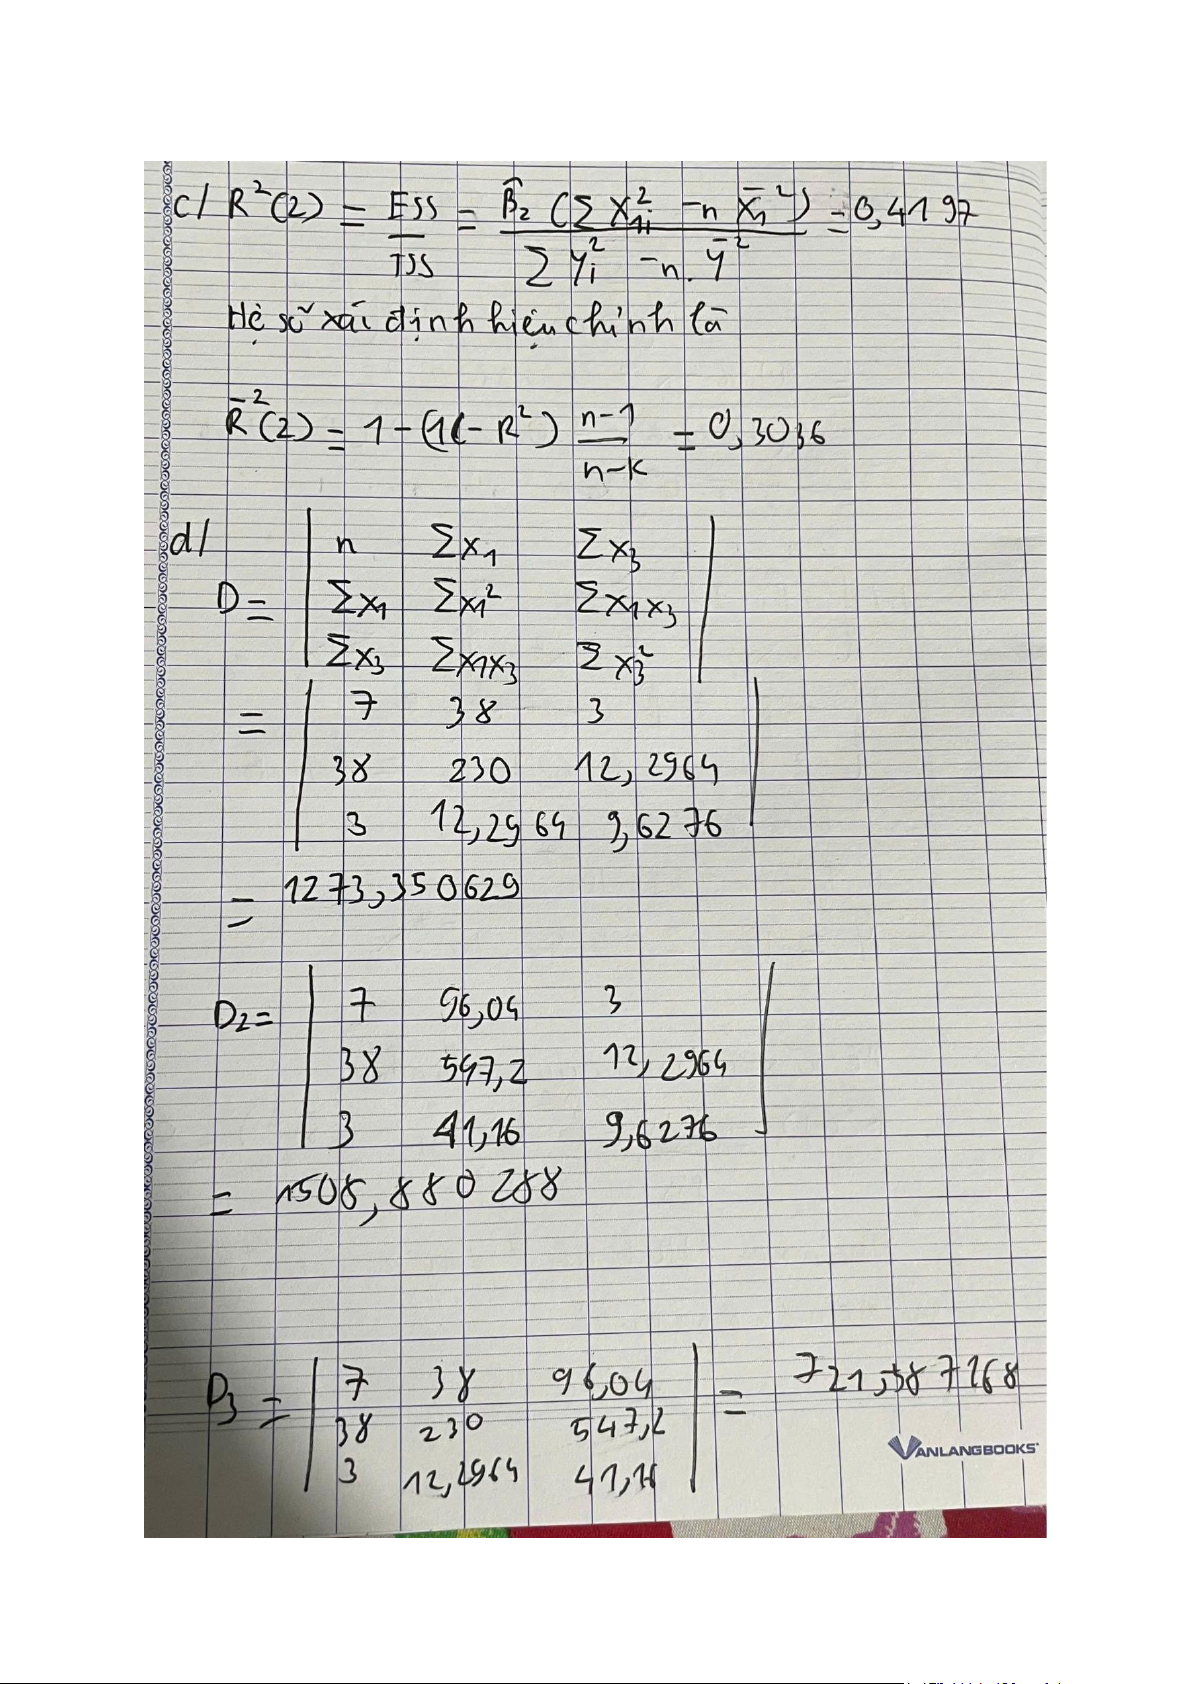 c/ R²(2) = ESS/TSS = β̂₂ (∑ X₁ᵢ² - n X̄₁²) / ∑ Yᵢ² - n. Ȳ² = 0,4197
Hệ số xác định hiệu chỉnh là
R̄²(2) = 1 - (1(- R²) n-1/n-k = 0,3036
d/
D = | n ∑x₁ ∑x₃ |
| ∑x₁ ∑x₁² ∑x₁x₃ |
| ∑x₃ ∑x₁x₃ ∑x₃² |
= | 7 38 3 |
| 38 230 12,2964 |
| 3 12,2964 9,6276 |
= 1273,350629
D₂ = | 7 96,04 3 |
| 38 547,2 12,2964 |
| 3 41,16 9,6276 |
= 1508,880288
D₃ = | 7 38 96,04 | = 721,587168
| 38 230 547,2 |
| 3 12,2964 41,16 |
VANLANGBOOKS